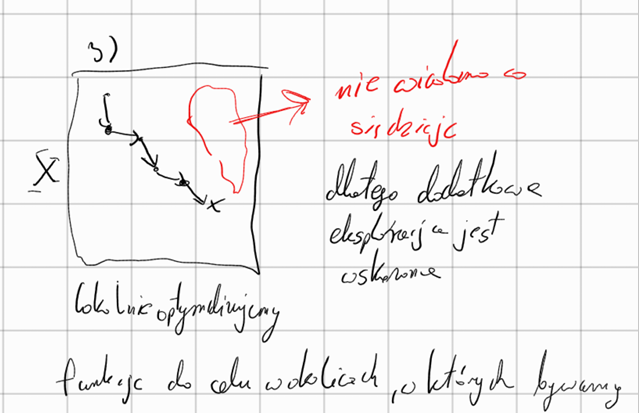 3)
nie wiadomo co
się dzieje
X
dlatego dodatkowa
eksploracja jest
wskazana
lokalnie optymalizujemy
funkcję do celu w okolicach, w których bywamy